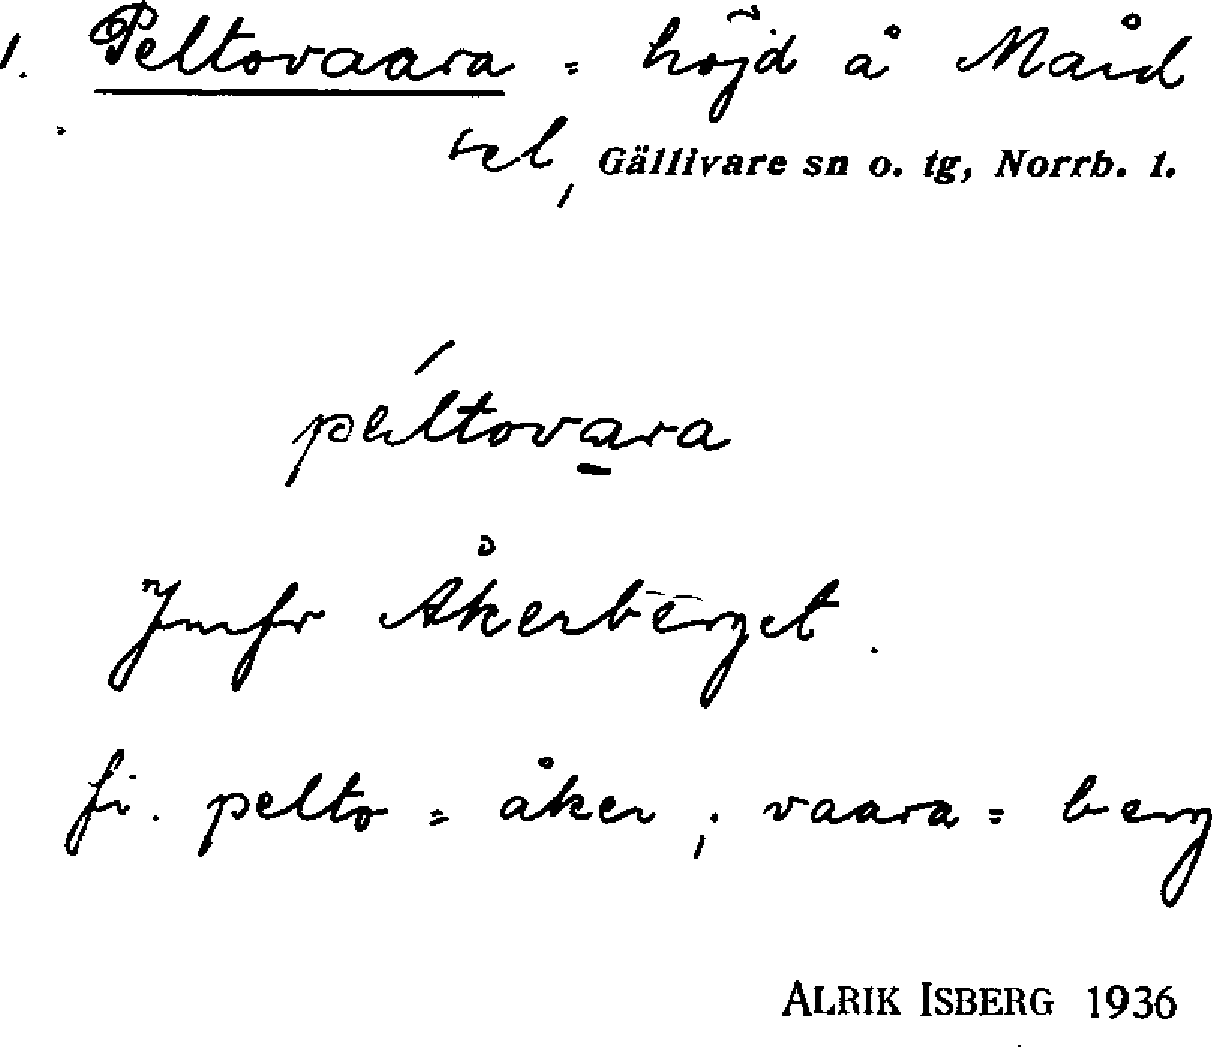 1. Peltovaara = höjd å Mård
sel, Gällivare sn o. tg, Norrb. l.
péltovara
Jmfr Åkerberget.
fi. pelto = åker; vaara = berg
ALRIK ISBERG 1936